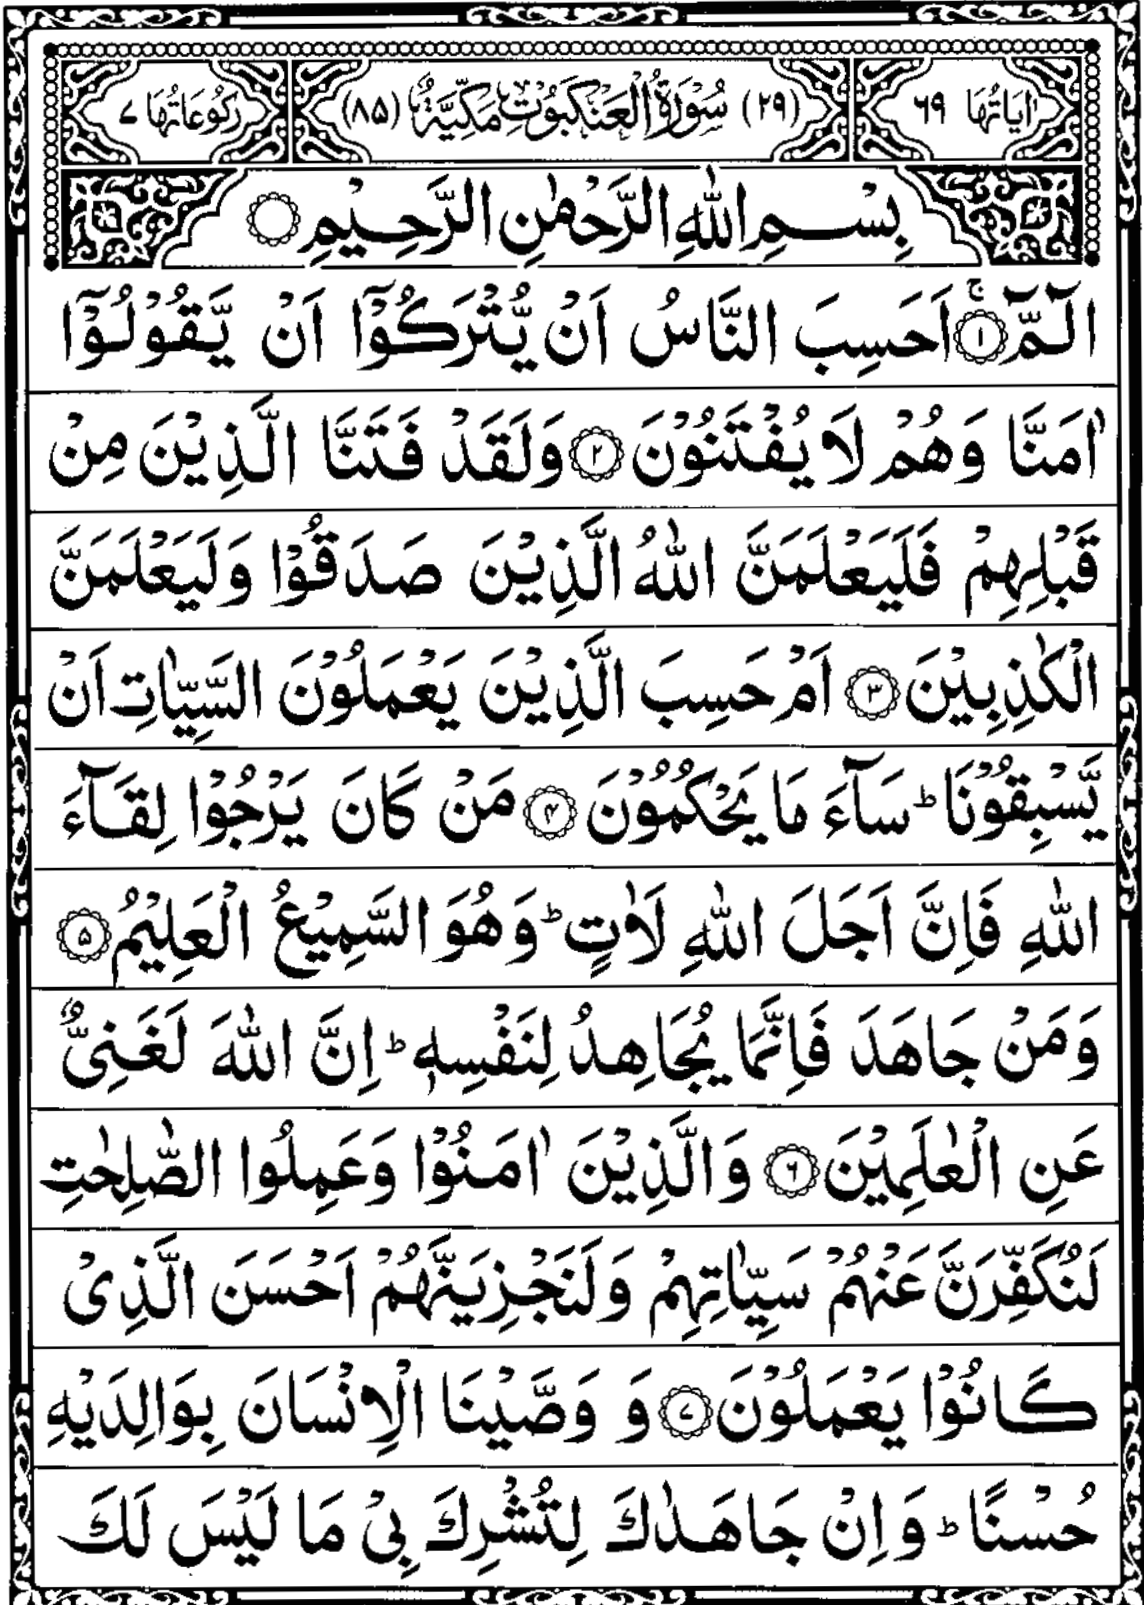 اٰیَاتُهَا ۶۹ (۲۹) سُوْرَةُ الْعَنْكَبُوْتِ مَكِّيَّةٌ (۸۵) رُكُوْعَاتُهَا ۷
بِسْمِ اللّٰهِ الرَّحْمٰنِ الرَّحِيْمِ
الٓمّٓ ۚ‏﴿۱﴾ اَحَسِبَ النَّاسُ اَنْ يُّتْرَكُوْۤا اَنْ يَّقُوْلُوْۤا
اٰمَنَّا وَهُمْ لَا يُفْتَنُوْنَ ﴿۲﴾ وَلَقَدْ فَتَنَّا الَّذِيْنَ مِنْ
قَبْلِهِمْ فَلَيَعْلَمَنَّ اللّٰهُ الَّذِيْنَ صَدَقُوْا وَلَيَعْلَمَنَّ
الْكٰذِبِيْنَ ﴿۳﴾ اَمْ حَسِبَ الَّذِيْنَ يَعْمَلُوْنَ السَّيِّاٰتِ اَنْ
يَّسْبِقُوْنَا ؕ سَآءَ مَا يَحْكُمُوْنَ ﴿۴﴾ مَنْ كَانَ يَرْجُوْا لِقَآءَ
اللّٰهِ فَاِنَّ اَجَلَ اللّٰهِ لَاٰتٍ ؕ وَهُوَ السَّمِيْعُ الْعَلِيْمُ ﴿۵﴾
وَمَنْ جَاهَدَ فَاِنَّمَا يُجَاهِدُ لِنَفْسِهٖ ؕ اِنَّ اللّٰهَ لَغَنِيٌّ
عَنِ الْعٰلَمِيْنَ ﴿۶﴾ وَالَّذِيْنَ اٰمَنُوْا وَعَمِلُوا الصّٰلِحٰتِ
لَنُكَفِّرَنَّ عَنْهُمْ سَيِّاٰتِهِمْ وَلَنَجْزِيَنَّهُمْ اَحْسَنَ الَّذِىْ
كَانُوْا يَعْمَلُوْنَ ﴿۷﴾ وَ وَصَّيْنَا الْاِنْسَانَ بِوَالِدَيْهِ
حُسْنًا ؕ وَاِنْ جَاهَدٰكَ لِتُشْرِكَ بِىْ مَا لَيْسَ لَكَ